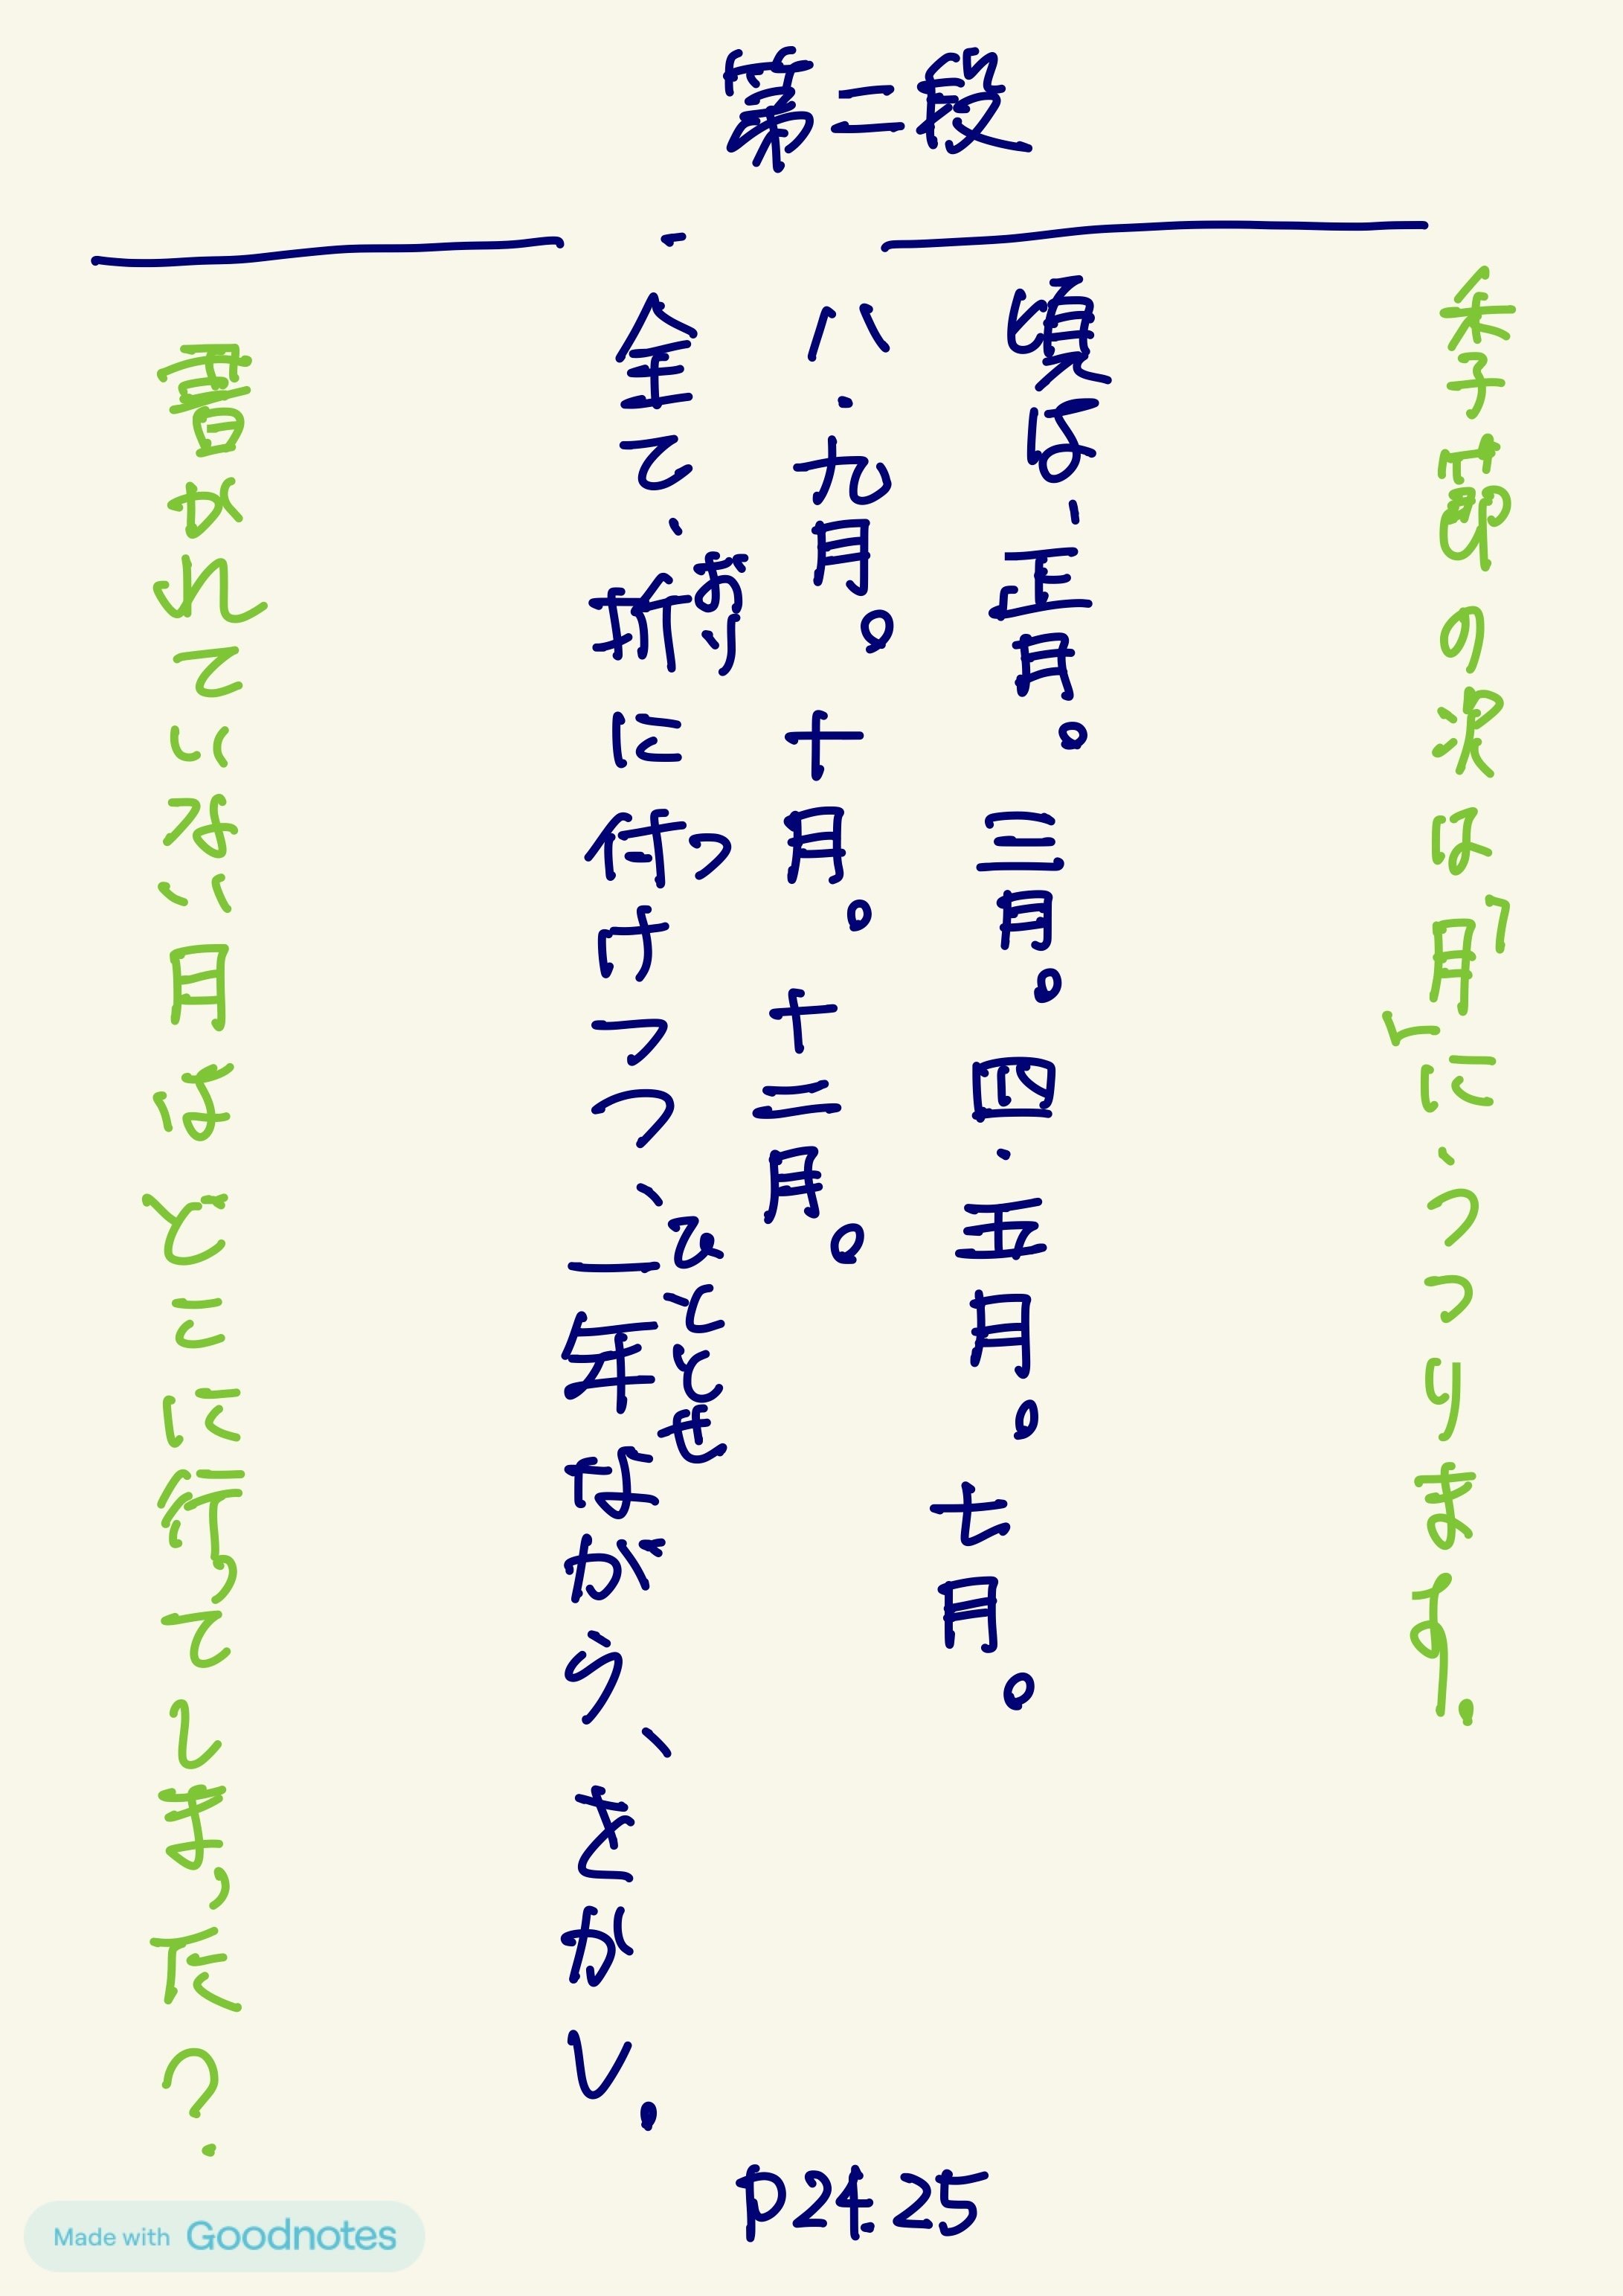 第二段
季節の次は「月」に、うつります。
頃は、正月。三月。四・五月。七月。
八・九月。十月。十二月。
全て、折に付けつつ、一年ながら、をかし。
おり
つ
ひととせ
書かれていない月はどこに行ってしまった？
P24.25
Made with Goodnotes